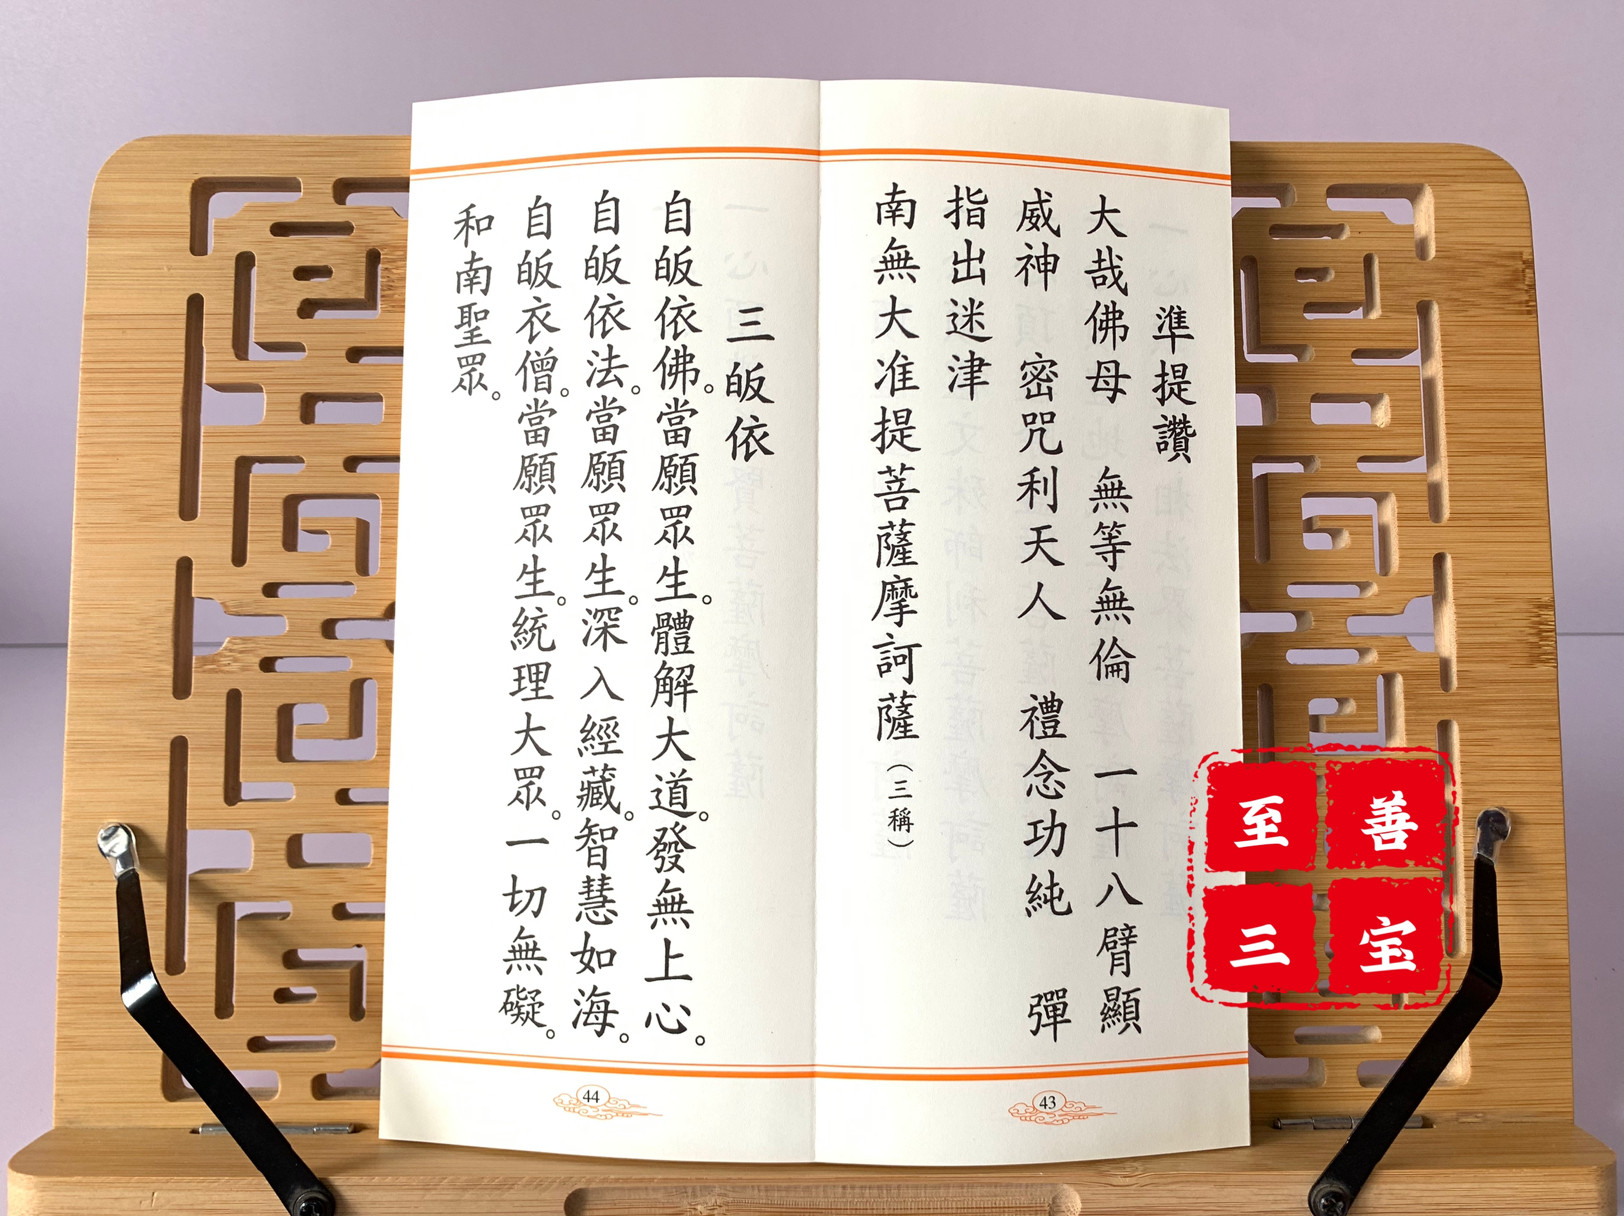 準提讚
大哉佛母　無等無倫　一十八臂顯
威神　密咒利天人　禮念功純　彈
指出迷津
南無大准提菩薩摩訶薩（三稱）
43
三皈依
自皈依佛。當願眾生。體解大道。發無上心。
自皈依法。當願眾生。深入經藏。智慧如海。
自皈衣僧。當願眾生。統理大眾。一切無礙。
和南聖眾。
44
至善
三宝